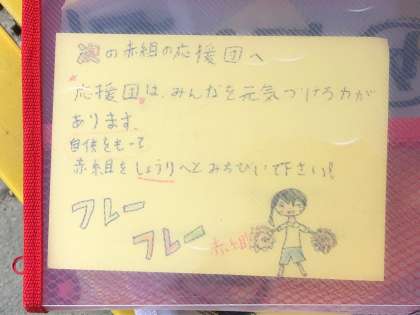 の赤組の応援団へ
応援団は、みんなを元気づける力が
あります。
自信をもって
赤組をしょうりへとみちびいて下さい!
フレー
フレー
赤組